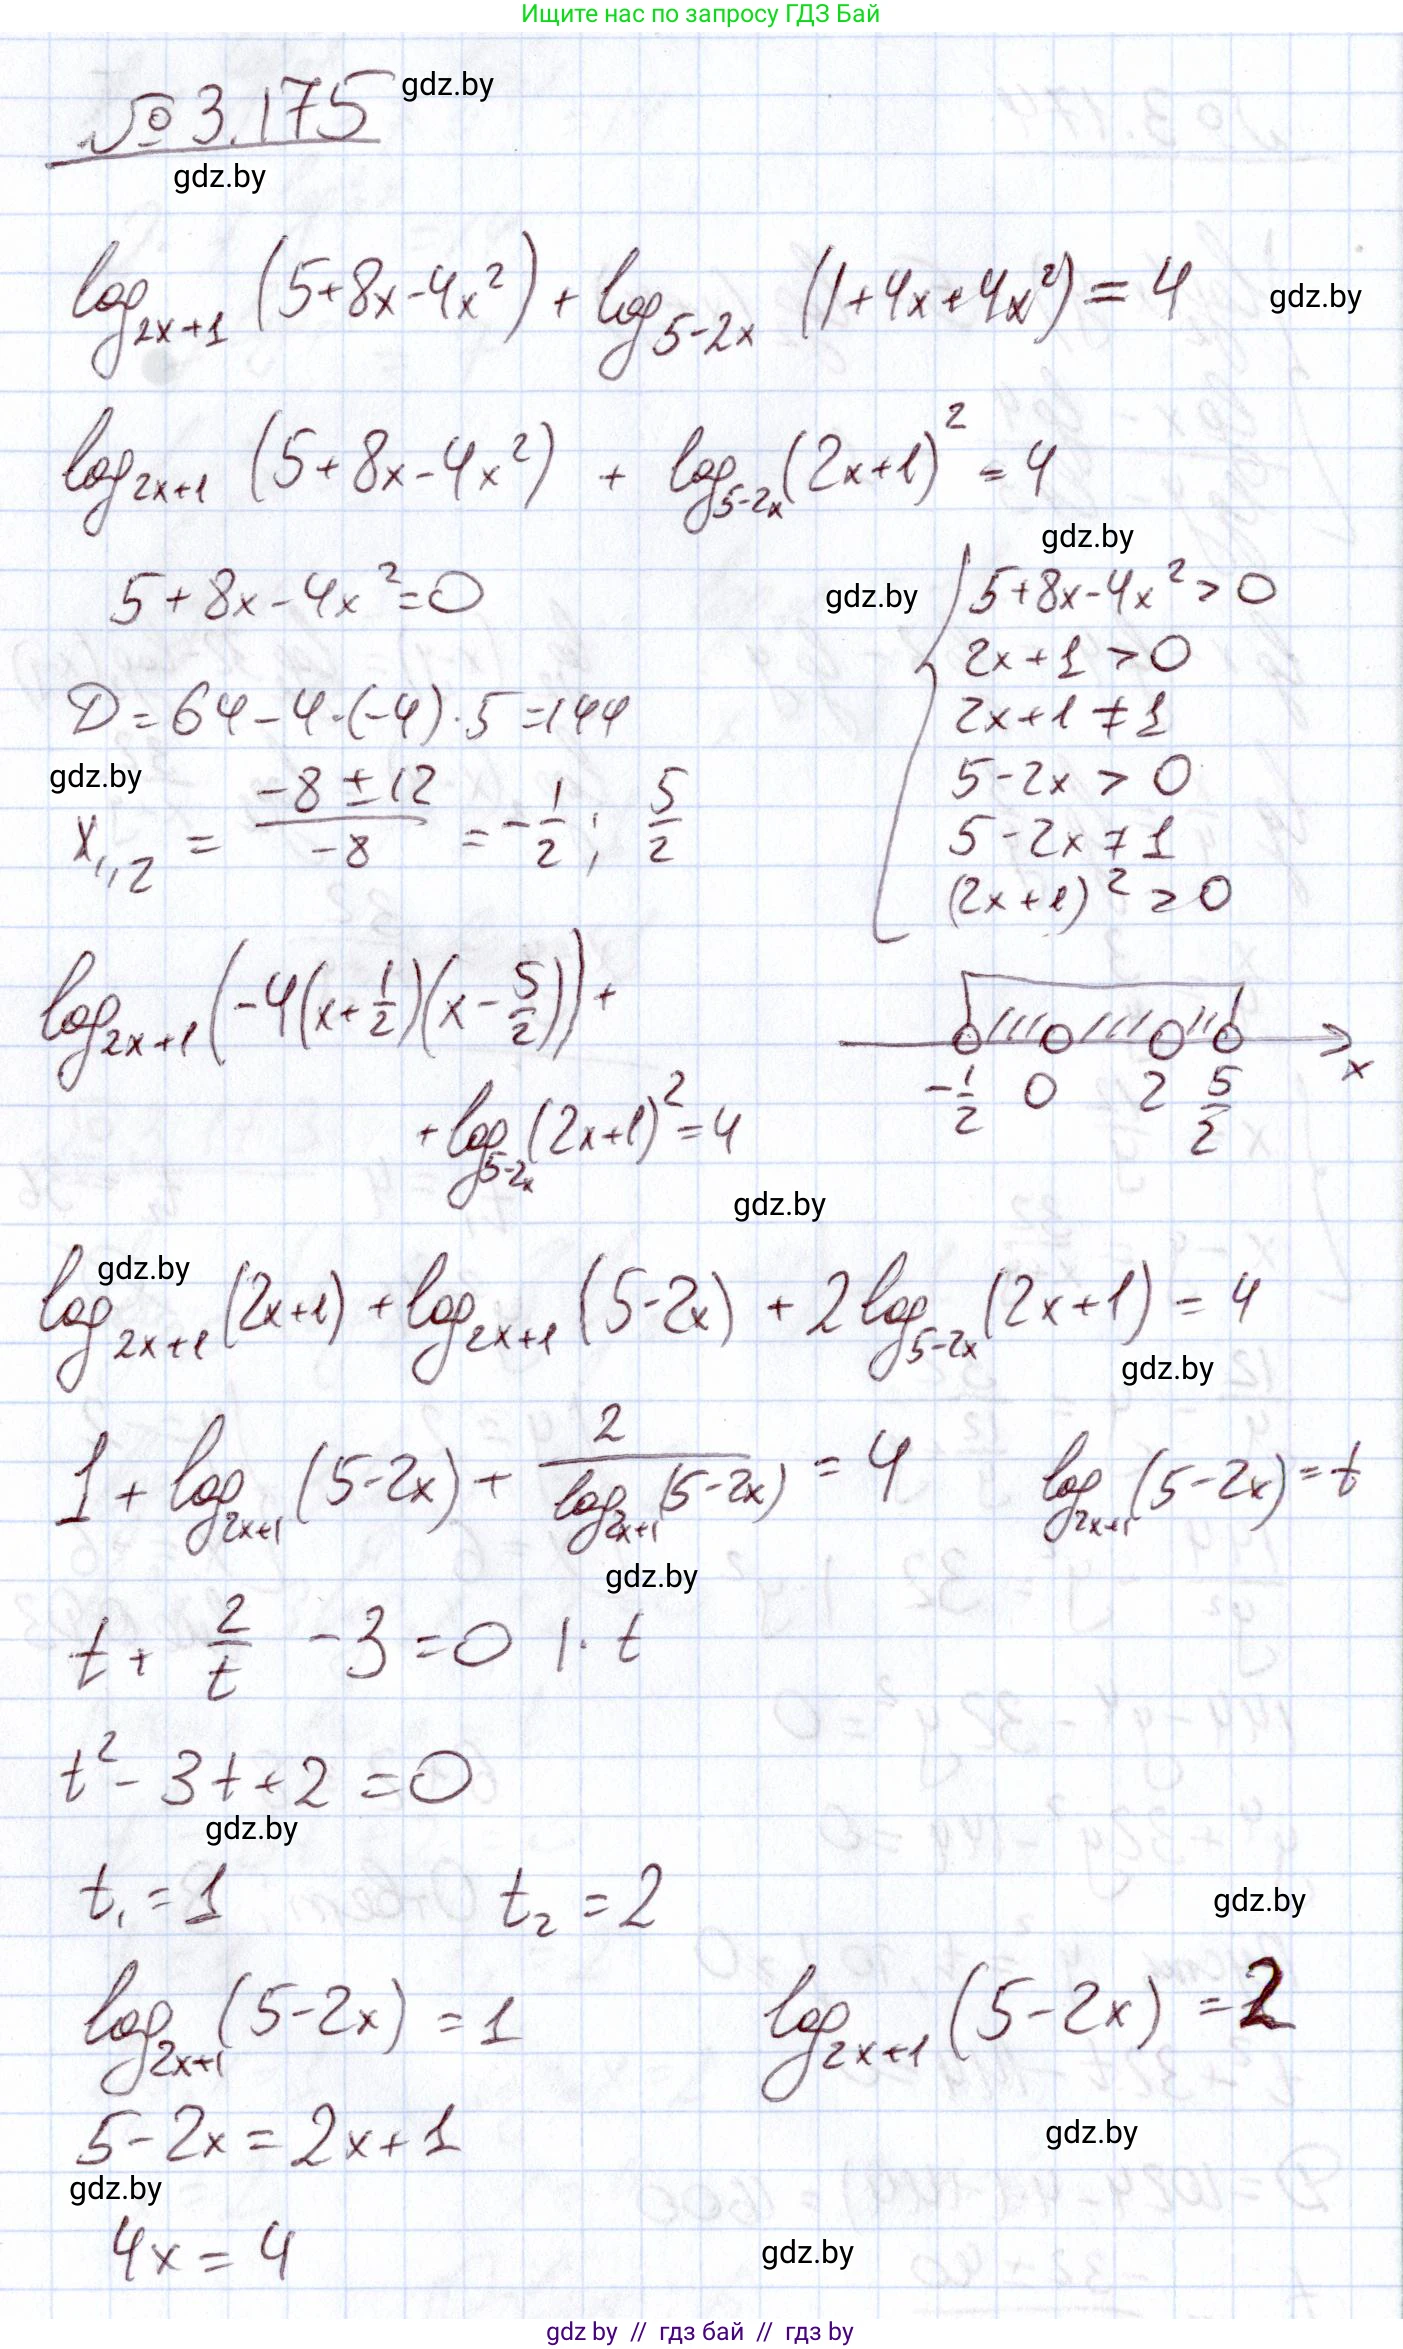 Ищите нас по запросу ГДЗ Бай
№ 3.175 gdz.by
gdz.by
log_{2x+1} (5+8x-4x²) + log_{5-2x} (1+4x+4x²) = 4 gdz.by
log_{2x+1} (5+8x-4x²) + log_{5-2x} (2x+1)² = 4
gdz.by
5+8x-4x²=0
gdz.by
{ 5+8x-4x² > 0
2x+1 > 0
2x+1 ≠ 1
5-2x > 0
5-2x ≠ 1
(2x+1)² > 0
D = 64-4·(-4)·5 = 144
gdz.by
x_{1,2} = (-8 ± 12)/(-8) = -1/2; 5/2
log_{2x+1} (-4(x+1/2)(x-5/2)) +
+ log_{5-2x} (2x+1)² = 4
-1/2 0 2 5/2 x
gdz.by
gdz.by
log_{2x+1} (2x+1) + log_{2x+1} (5-2x) + 2 log_{5-2x} (2x+1) = 4
gdz.by
1 + log_{2x+1} (5-2x) + 2/(log_{2x+1} (5-2x)) = 4 log_{2x+1} (5-2x) = t
gdz.by
t + 2/t - 3 = 0 |· t
t² - 3t + 2 = 0
gdz.by
t₁ = 1 t₂ = 2
gdz.by
log_{2x+1} (5-2x) = 1 log_{2x+1} (5-2x) = 2
5-2x = 2x+1
gdz.by
gdz.by
4x = 4
gdz.by
gdz by // гдз бай // gdz by